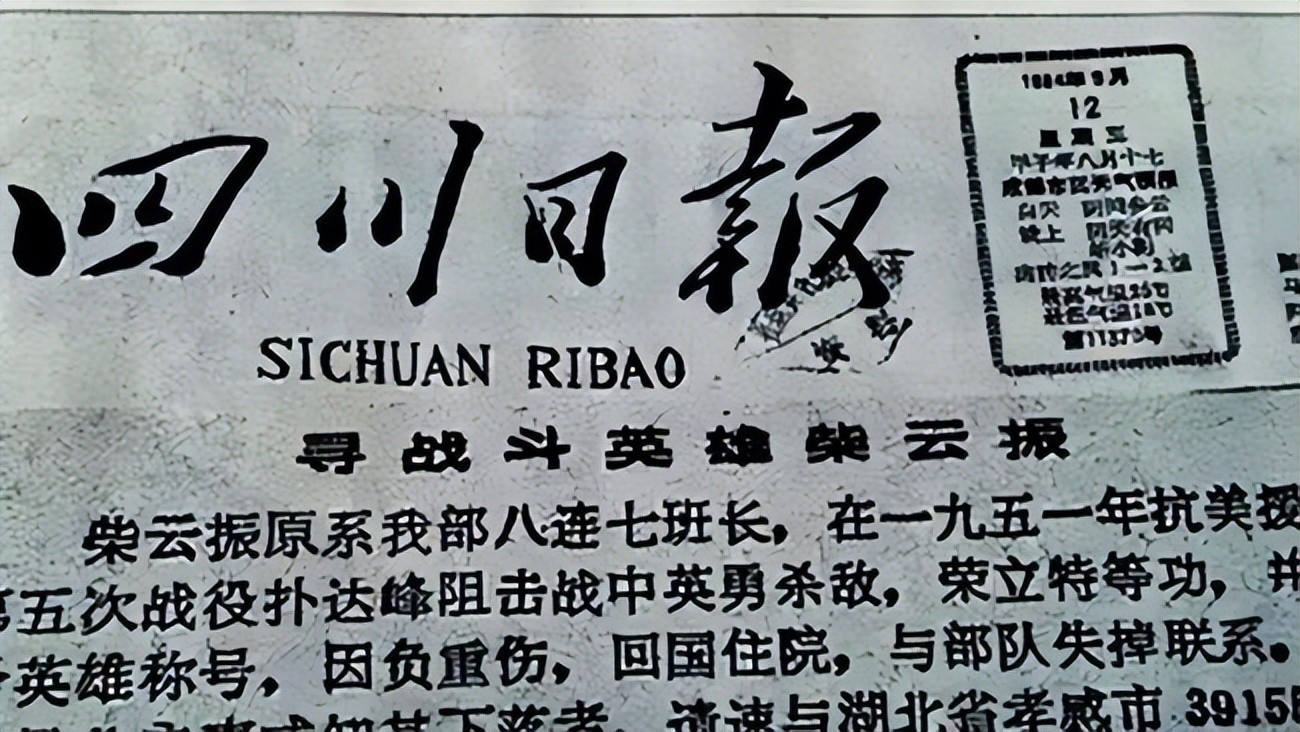 四川日报
SICHUAN RIBAO
1984年9月
12
星期三
甲子年八月十七
成都市区天气预报
白天 阴间多云
晚上 阴天有阵
最高气温25℃
最低气温18℃
寻战斗英雄柴云振
柴云振原系我部八连七班长，在一九五一年抗美援
第五次战役扑达峰阻击战中英勇杀敌，荣立特等功，并
英雄称号，因负重伤，回国住院，与部队失掉联系。
下落者，请速与湖北省孝感市3915